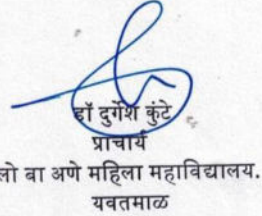 डॉ दुर्गेश कुंटे
प्राचार्य
लो बा अणे महिला महाविद्यालय.
यवतमाळ